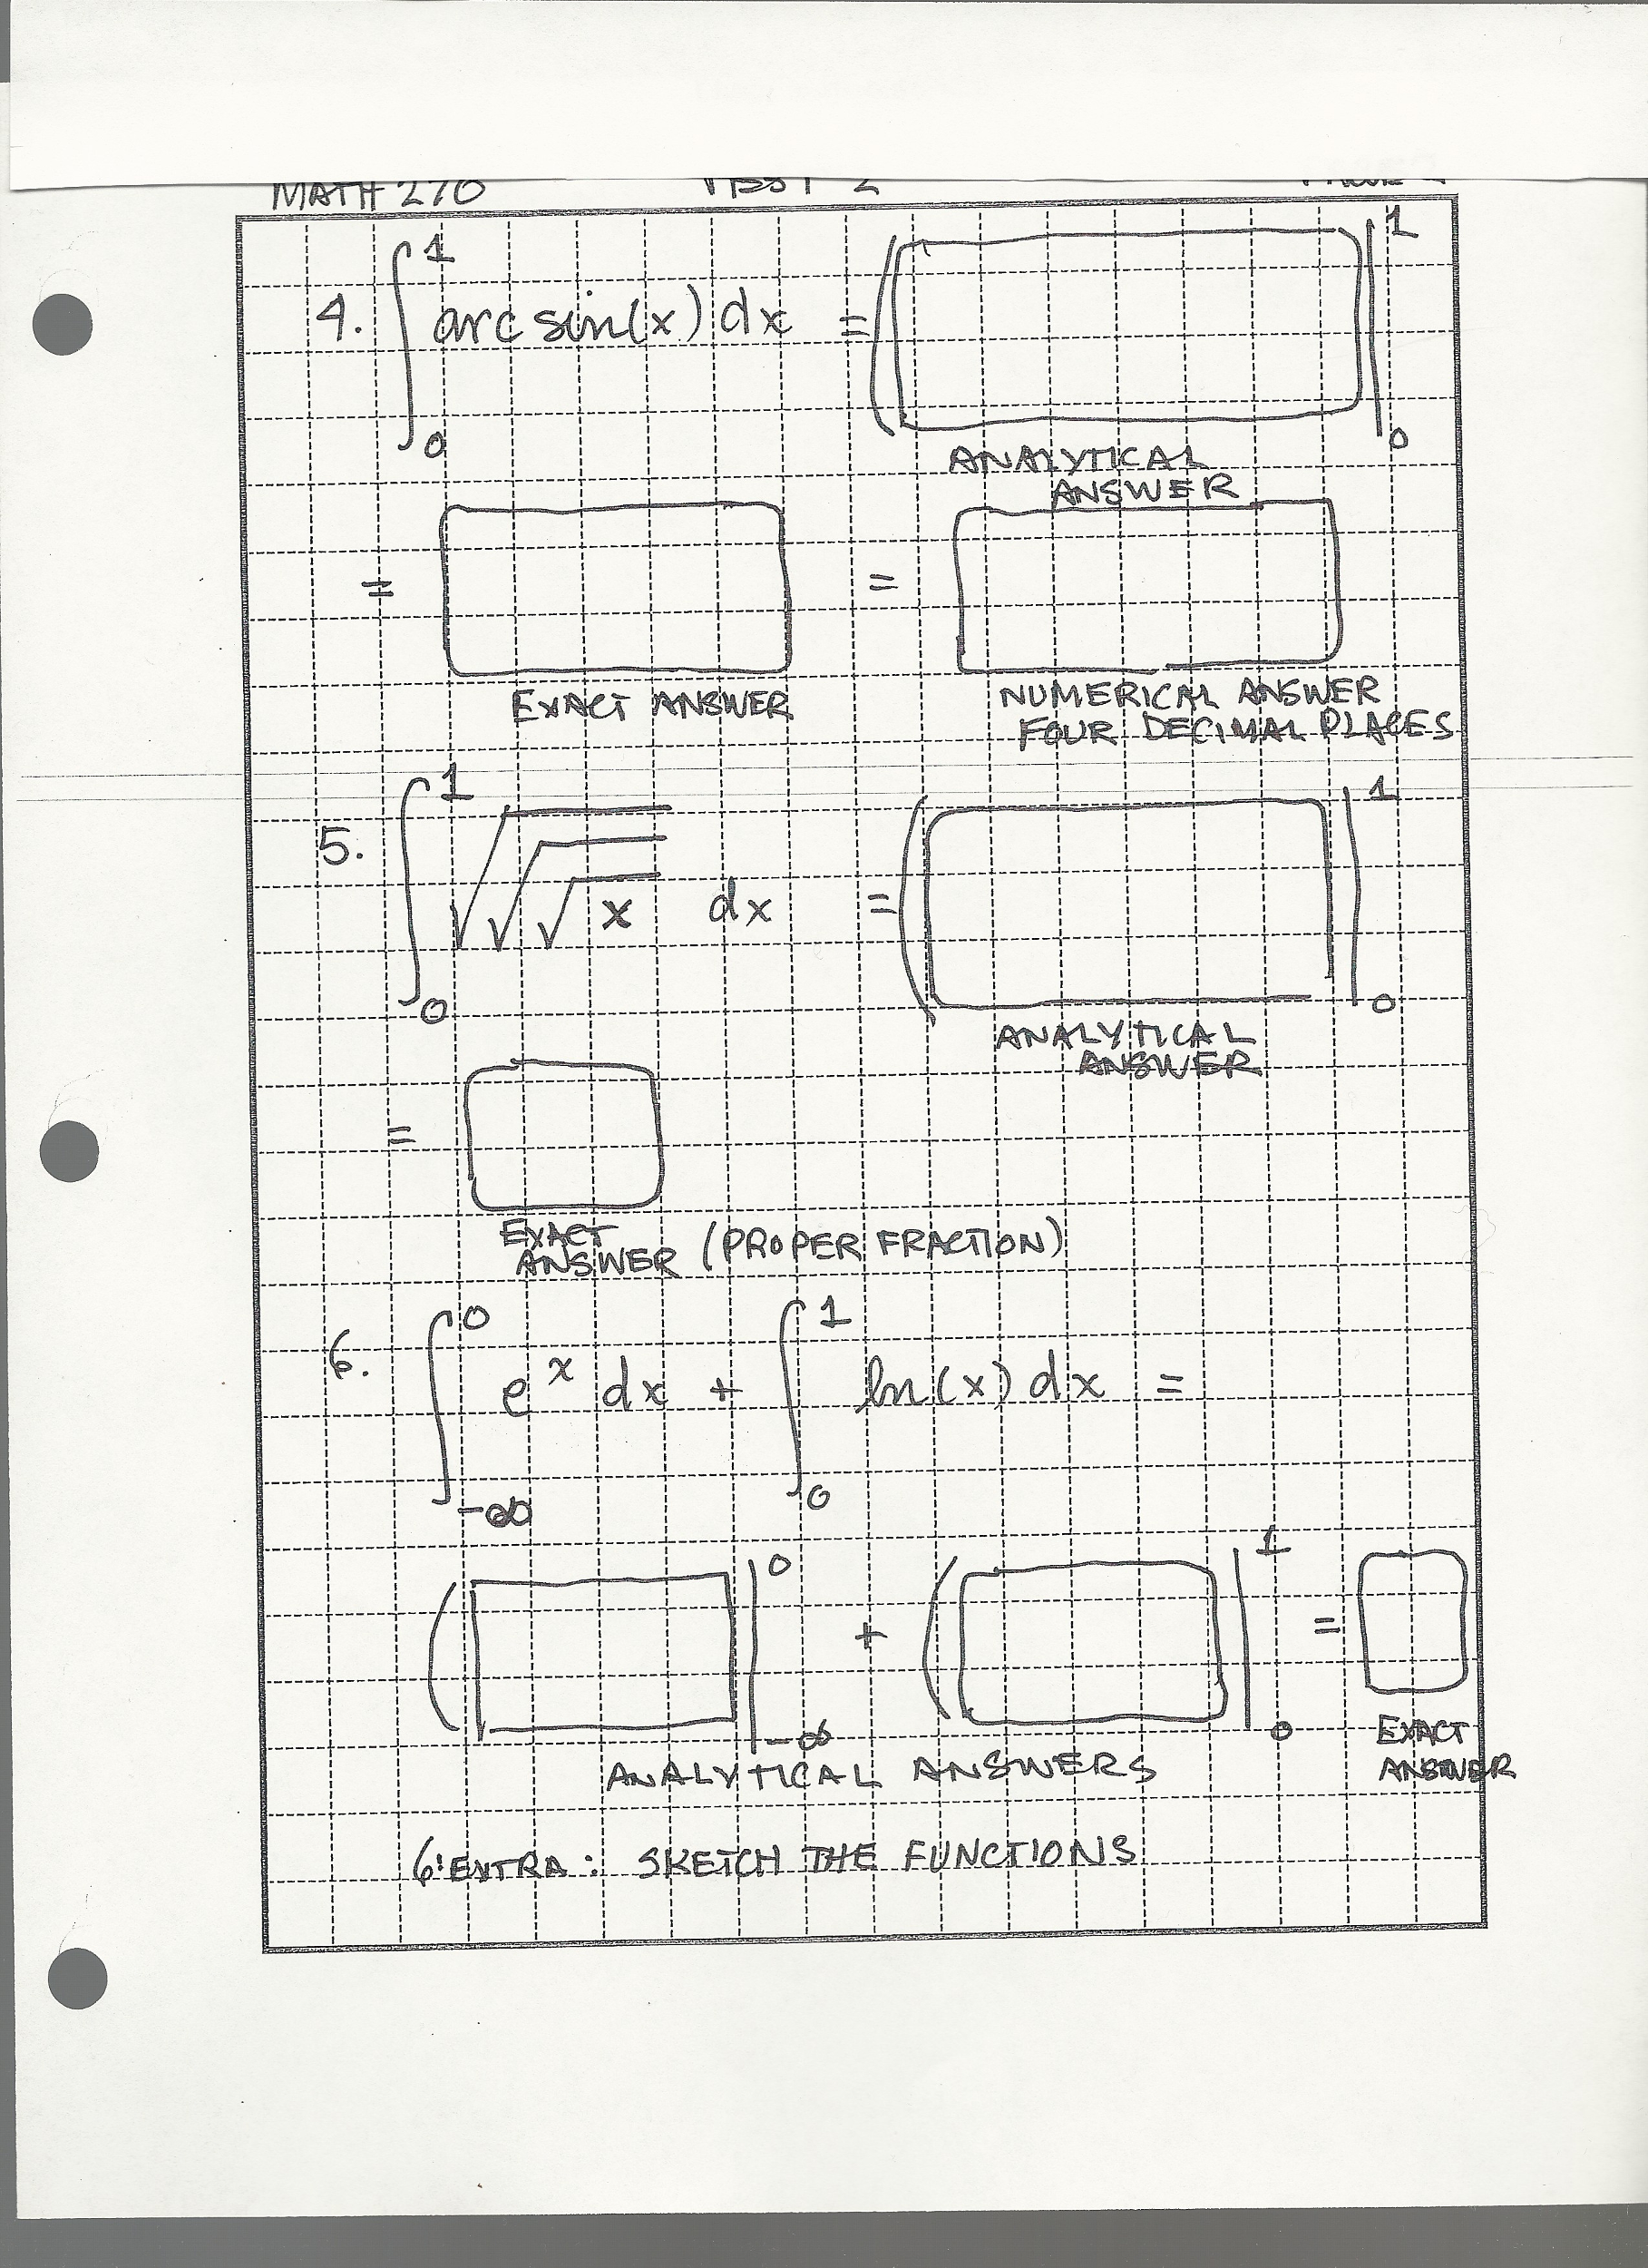 MATH 270 TEST 2
4. ∫₀¹ arcsin(x) dx = ( |₀¹
ANALYTICAL
ANSWER
= =
EXACT ANSWER NUMERICAL ANSWER
FOUR DECIMAL PLACES
5. ∫₀¹ √√√x dx = ( |₀¹
ANALYTICAL
ANSWER
=
EXACT
ANSWER (PROPER FRACTION)
6. ∫₋∞⁰ eˣ dx + ∫₀¹ ln(x) dx =
( |₋∞⁰ + ( |₀¹ =
ANALYTICAL ANSWERS EXACT
ANSWER
6'EXTRA: SKETCH THE FUNCTIONS